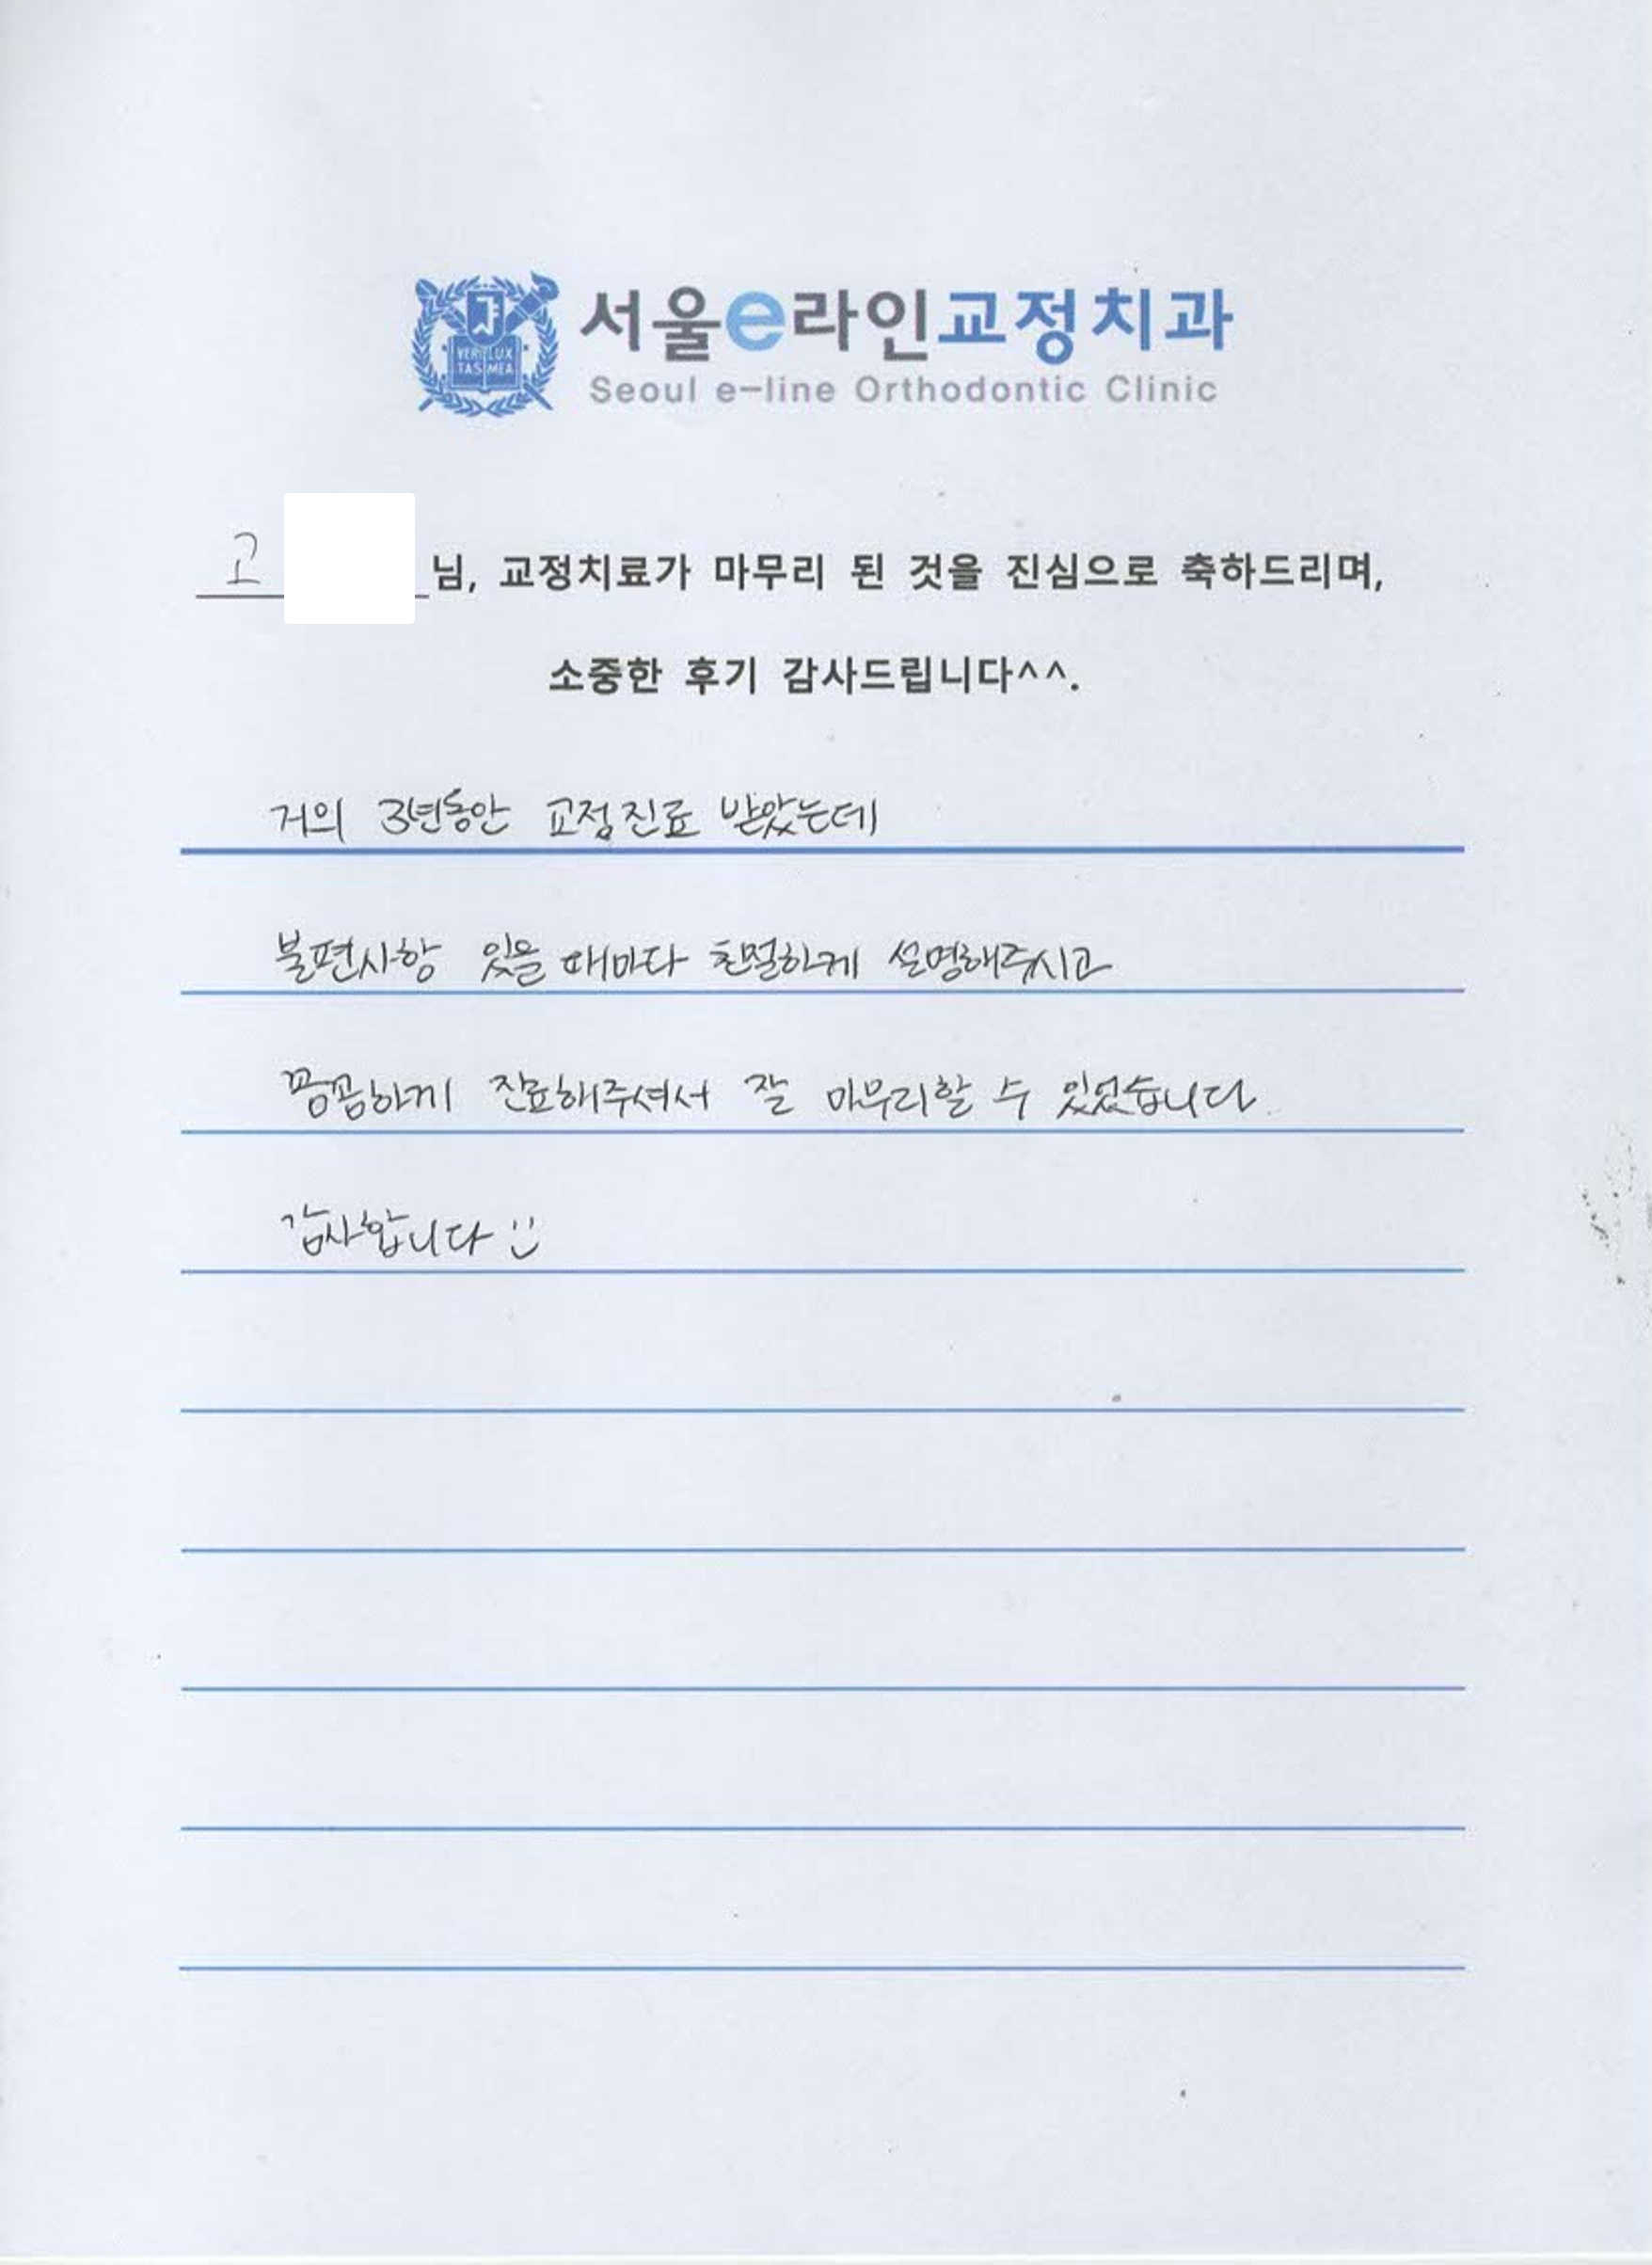 서울e라인교정치과
VERI LUX
TAS MEA
Seoul e-line Orthodontic Clinic
고 님, 교정치료가 마무리 된 것을 진심으로 축하드리며,
소중한 후기 감사드립니다^^.
거의 3년동안 교정진료 받았는데
불편사항 있을 때마다 친절하게 설명해주시고
꼼꼼하게 진료해주셔서 잘 마무리할 수 있었습니다
감사합니다 :)